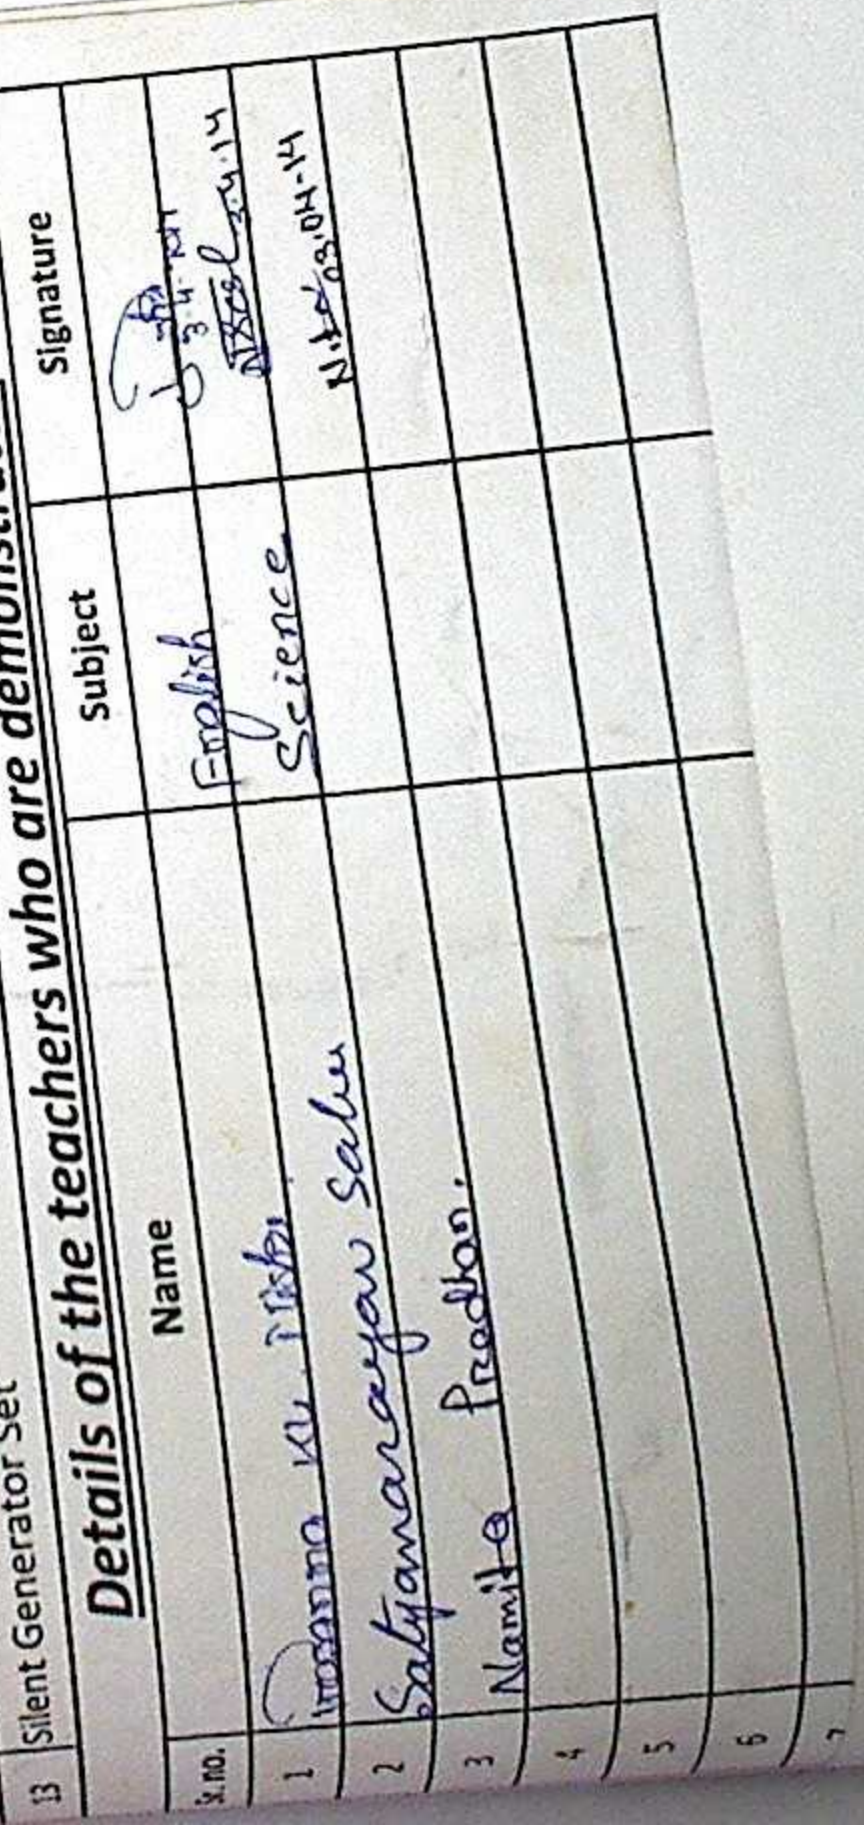 13 Silent Generator Set
Details of the teachers who are
Sr.no. Name Subject Signature
1 Prasanna Ku. English 3.4.2014
2 Satyanarayan Sahu Science 3.4.14
3 Namita Pradhan. 03.04-14
4
5
6
7